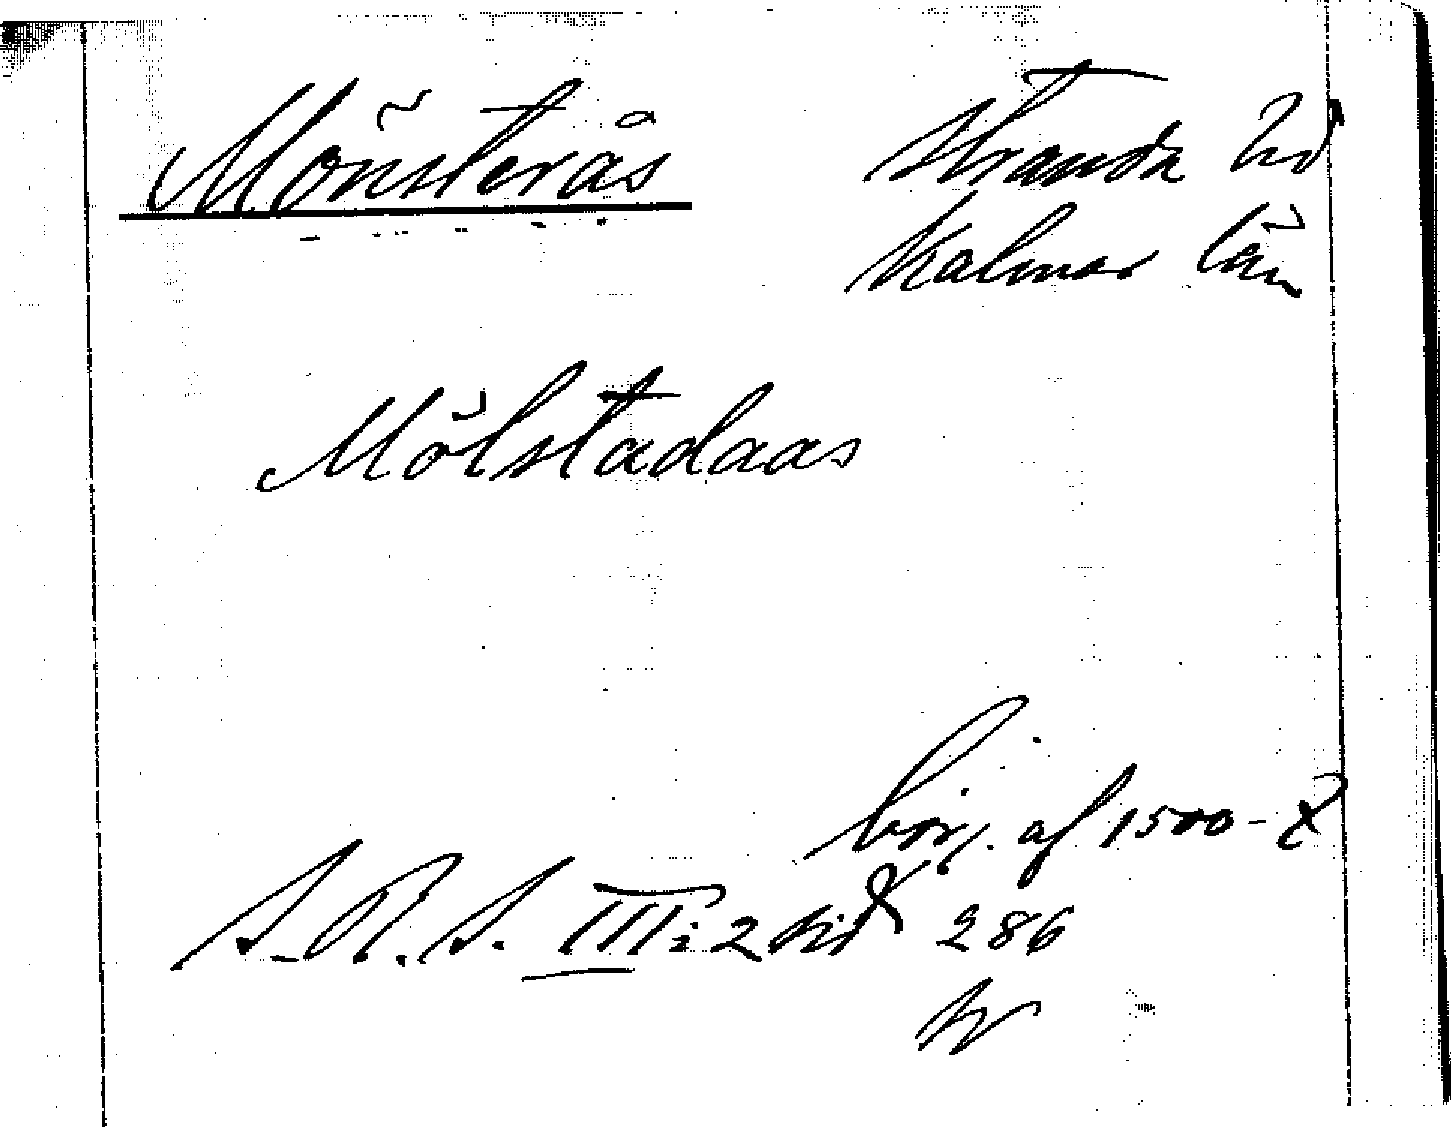 Mönsterås Stranda hd
Kalmar län
Mölstadaas
börj. af 1500-t
S.R.S. III:2 sid 286